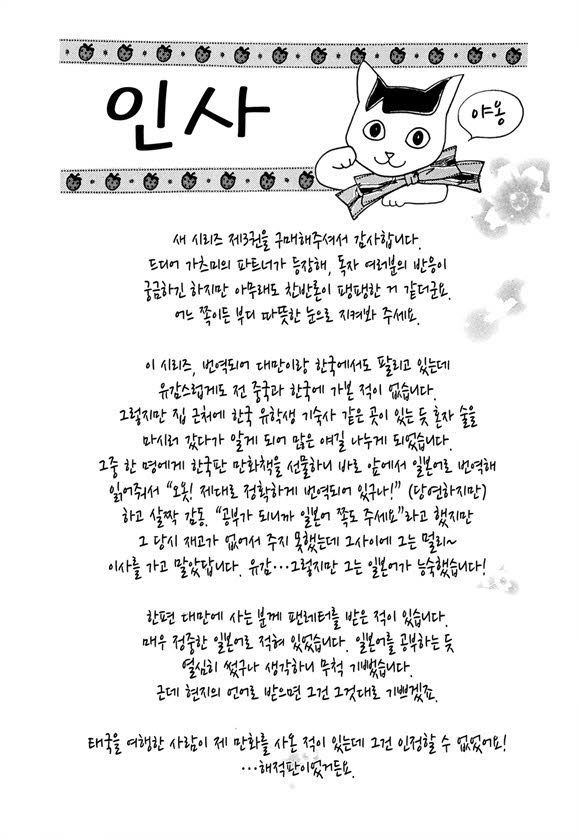 인사
야옹
새 시리즈 제3권을 구매해주셔서 감사합니다.
드디어 가츠미의 파트너가 등장해, 독자 여러분의 반응이
궁금하긴 하지만 아무래도 찬반론이 팽팽한 거 같더군요.
어느 쪽이든 부디 따뜻한 눈으로 지켜봐 주세요.
이 시리즈, 번역되어 대만이랑 한국에서도 팔리고 있는데
유감스럽게도 전 중국과 한국에 가본 적이 없습니다.
그렇지만 집 근처에 한국 유학생 기숙사 같은 곳이 있는 듯 혼자 술을
마시러 갔다가 알게 되어 많은 얘길 나누게 되었습니다.
그중 한 명에게 한국판 만화책을 선물하니 바로 앞에서 일본어로 번역해
읽어줘서 "오옷! 제대로 정확하게 번역되어 있구나!" (당연하지만)
하고 살짝 감동. "공부가 되니까 일본어 쪽도 주세요"라고 했지만
그 당시 재고가 없어서 주지 못했는데 그사이에 그는 멀리~
이사를 가고 말았답니다. 유감…그렇지만 그는 일본어가 능숙했습니다!
한편 대만에 사는 분께 팬레터를 받은 적이 있습니다.
매우 정중한 일본어로 적혀 있었습니다. 일본어를 공부하는 듯
열심히 썼구나 생각하니 무척 기뻤습니다.
근데 현지의 언어로 받으면 그건 그것대로 기쁘겠죠.
태국을 여행한 사람이 제 만화를 사온 적이 있는데 그건 인정할 수 없었어요!
…해적판이었거든요.